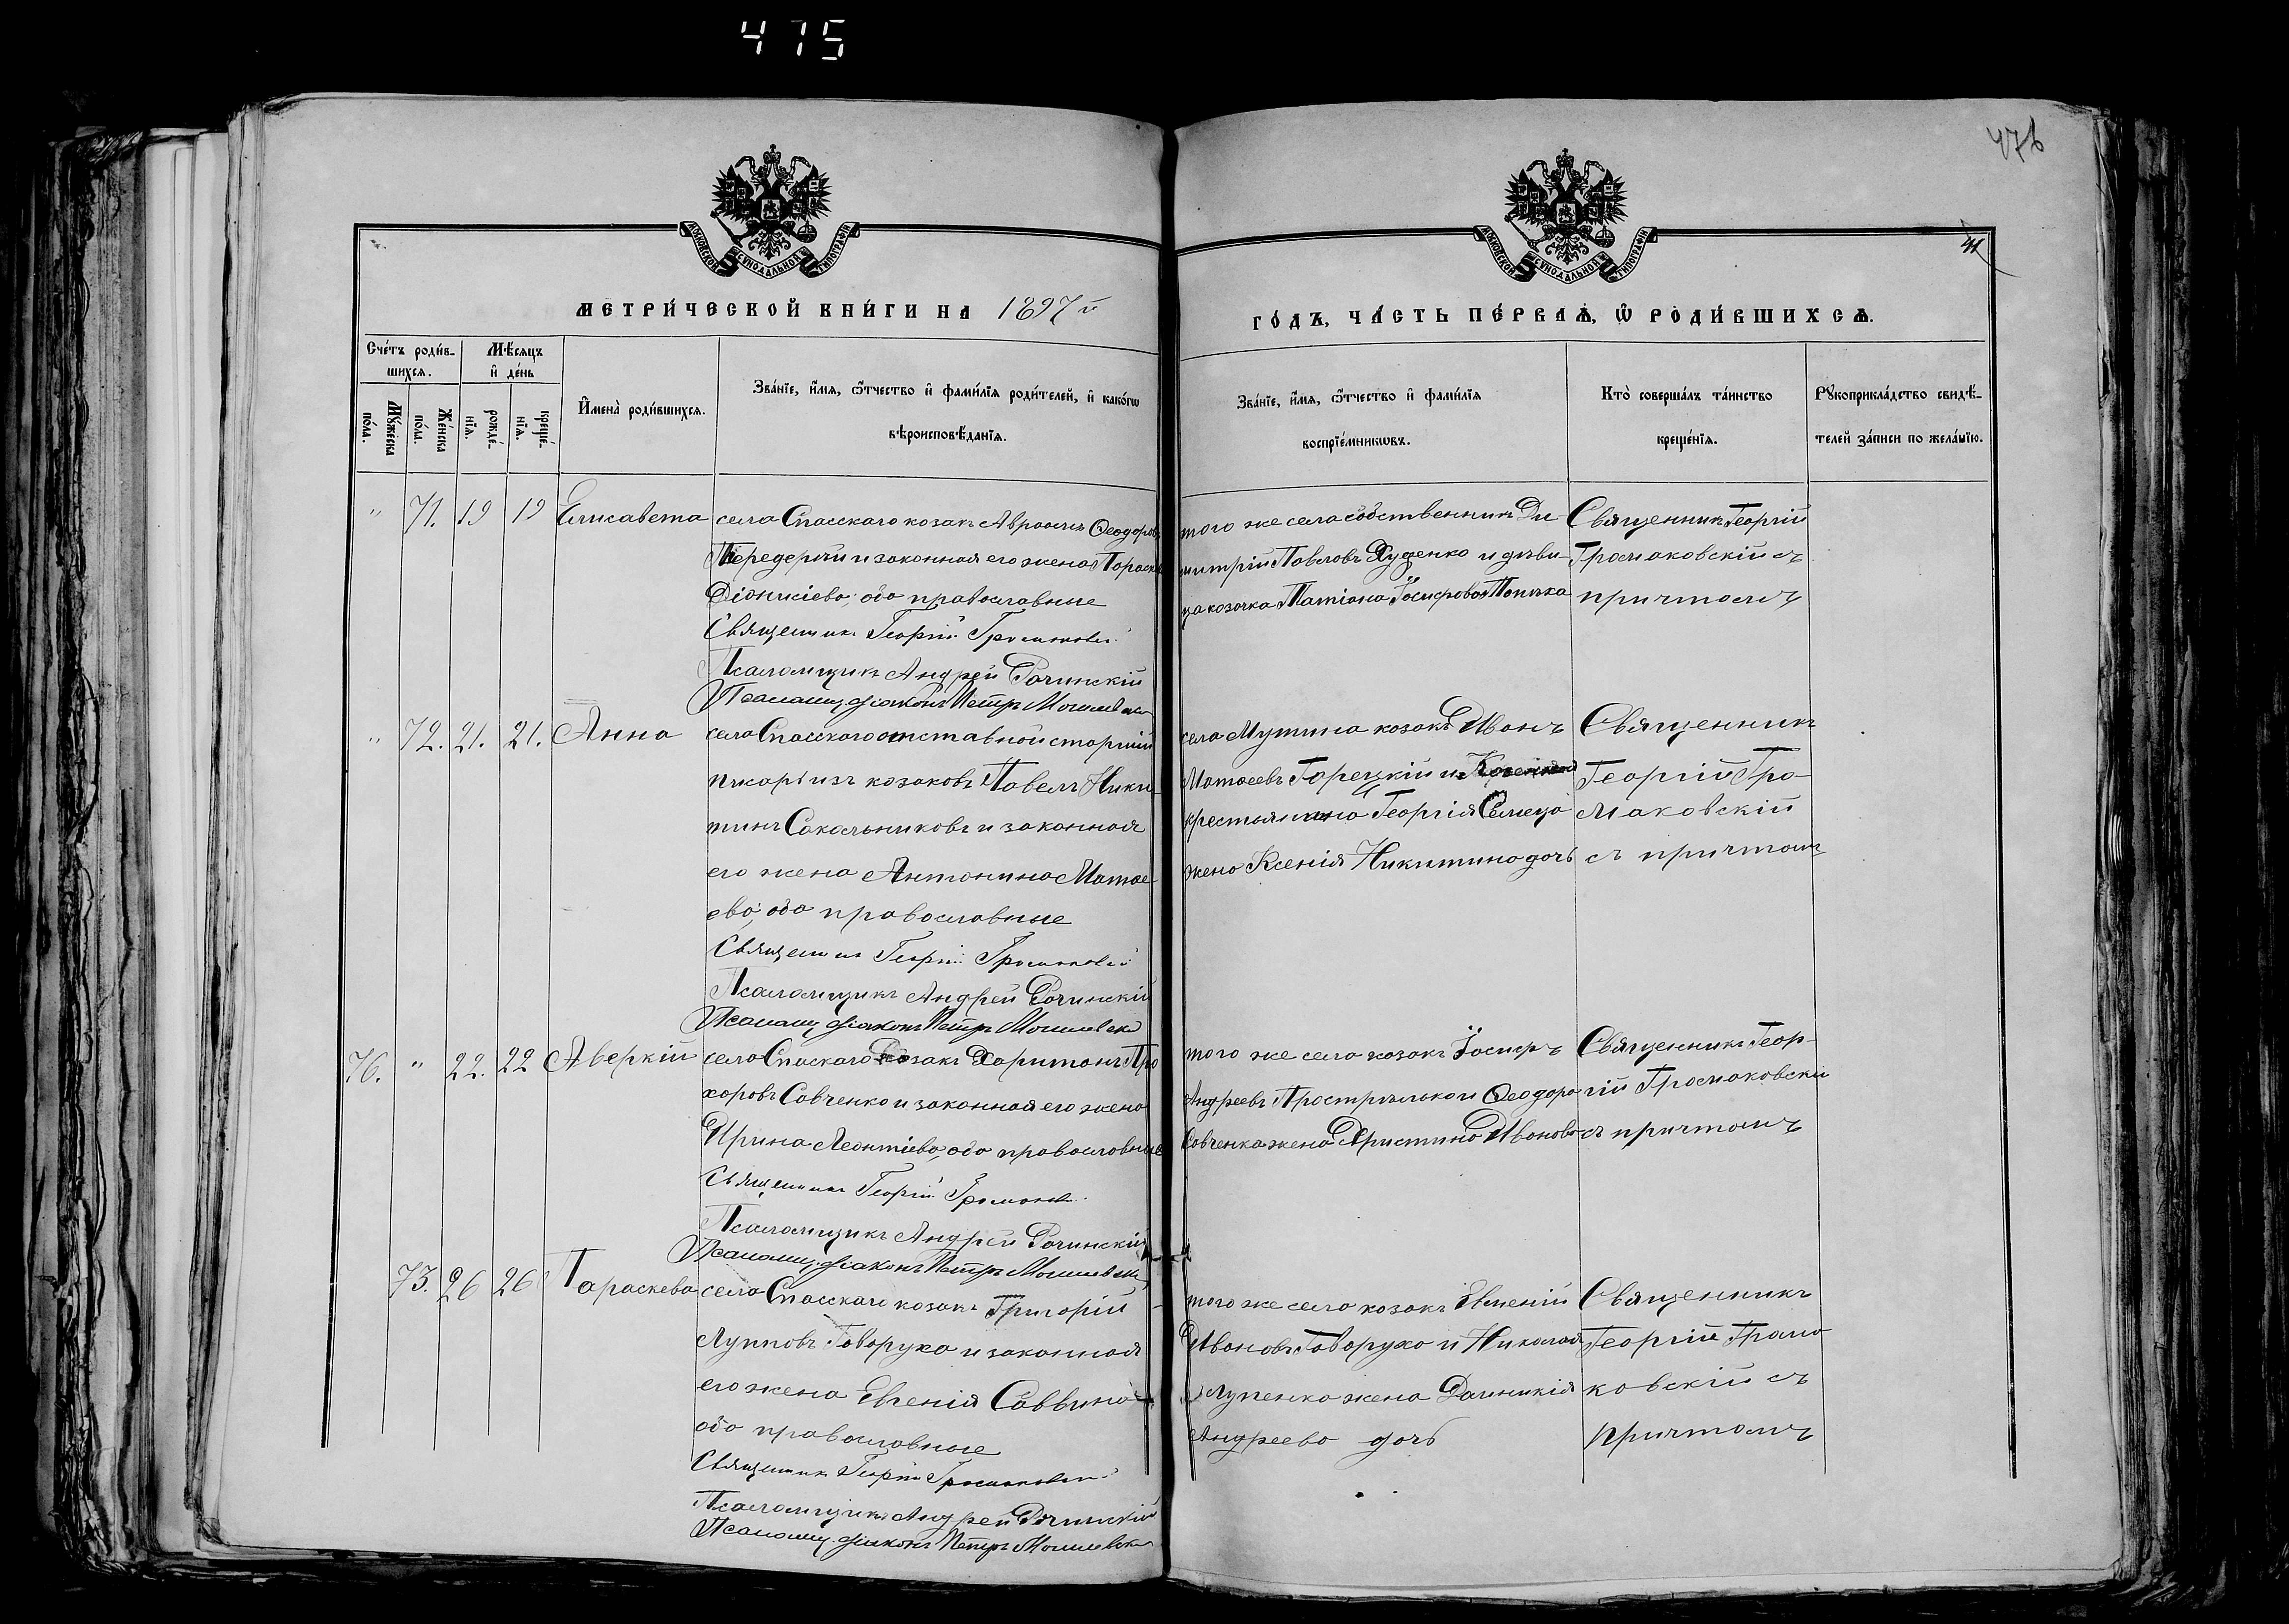 475
476
41
МОСКОВСКОЙ СУНОДАЛЬНОЙ ТИПОГРАФІИ
МОСКОВСКОЙ СУНОДАЛЬНОЙ ТИПОГРАФІИ
МЕТРИ́ЧЕСКОЙ КНИ́ГИ НА 1897й
ГО́ДЪ, ЧА́СТЬ ПЕ́РВАѦ, Ѿ РОДИ́ВШИХСѦ.
Сче́тъ роди́в-
шихсѧ.
Мѣ́сѧцъ
и҆ де́нь
Мꙋ́жеска
по́ла.
Же́нска
по́ла.
рожде́-
нїѧ.
креще́-
нїѧ.
И҆мена̀ роди́вшихсѧ.
Зва́нїе, и҆́мѧ, ѻ҆́тчество и҆ фами́лїѧ роди́телей, и҆ како́гѡ
вѣроисповѣ́данїѧ.
Зва́нїе, и҆́мѧ, ѻ҆́тчество и҆ фами́лїѧ
воспрїе́мникѡвъ.
Кто̀ соверша́лъ та́инство
креще́нїѧ.
Рꙋкоприкла́дство свидѣ́-
телей за́писи по жела́нїю.
" 71. 19 19 Елисавета
села Спасскаго козакъ Авраамъ Ѳеодоров
Передерій и законная его жена Параске
Діонисіева, оба православные
Священникъ Георгій Громаковскій
Псаломщикъ Андрей Рачинскій
Псаломщ. діаконъ Петръ
того же села собственникъ Ди-
митрій Павловъ Худенко и дѣви-
ца козачка Татіана Іосифова
Священникъ Георгій
Громаковскій съ
причтомъ
" 72. 21. 21. Анна
села Спасскаго отставной старшій
писарь изъ козаковъ Павелъ Ники-
тинъ Сакальниковъ и законная
его жена Антонина Матѳе-
ева, оба православные
Священникъ Георгій Громаковскій
Псаломщикъ Андрей Рачинскій
Псаломщ. діаконъ Петръ
села Мутина козакъ Иванъ
Матѳеевъ Гарецкій и
крестьянина Георгія
жена Ксенія Никитина дочь
Священникъ
Георгій Гро-
маковскій
съ причтомъ
76. " 22. 22 Аверкій
села Спаскаго козакъ Харитонъ Про
хоровъ Савченко и законная его жена
Ирина Леонтіева, оба православные
Священникъ Георгій
Псаломщикъ Андрей Рачинскій
Псаломщ. діаконъ Петръ
того же села козакъ Іосифъ
Андреевъ и Ѳеодора
Савченка жена Христина Иванова
Священникъ Геор-
гій Громаковскій
съ причтомъ
73. 26 26 Параскева
села Спасскаго козакъ Григорій
Лупповъ Говоруха и законная
его жена Евгенія Саввина
оба православные
Священникъ Георгій Громаковскій
Псаломщикъ Андрей Рачинскій
Псаломщ. діаконъ Петръ
того же села козакъ Евмений
Ивановъ Говорухо и Николая
Лупенка жена Домникія
Андреева дочь
Священникъ
Георгій Грома
ковскій съ
причтомъ